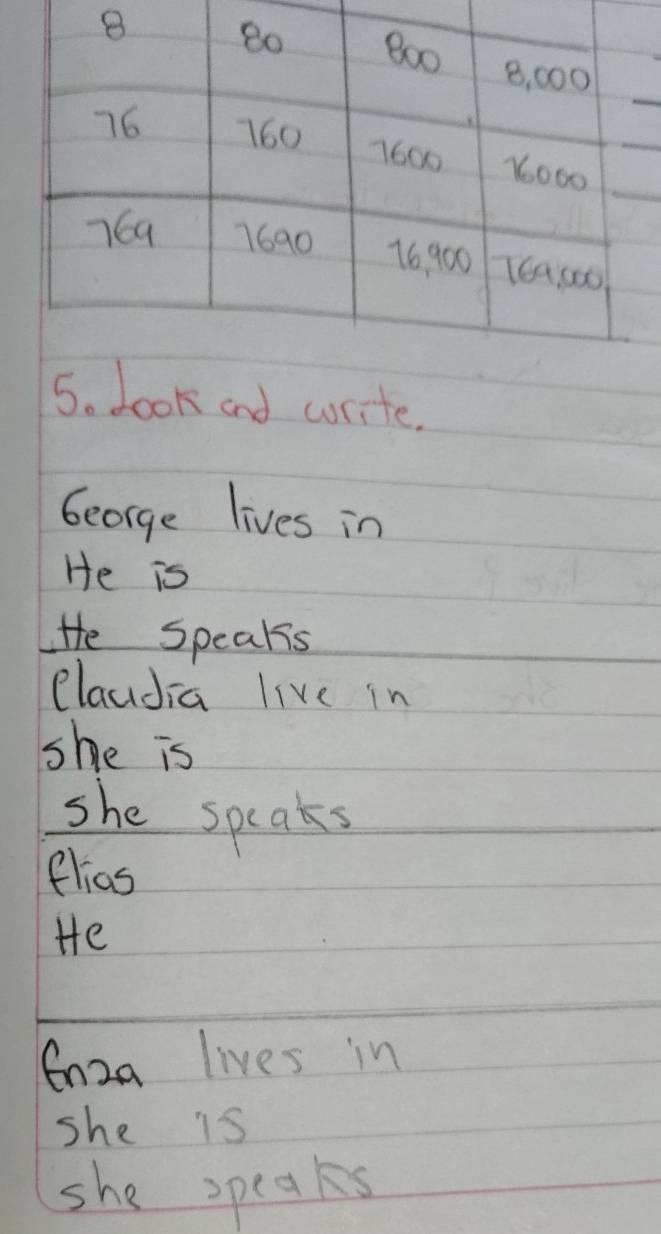 8 80 800 8,000
76 760 7600 76000
769 7690 76,900 769,000
5. Look and write.
George lives in
He is
He speaks
Claudia live in
she is
she speaks
Elias
He
Enza lives in
she is
she speaks